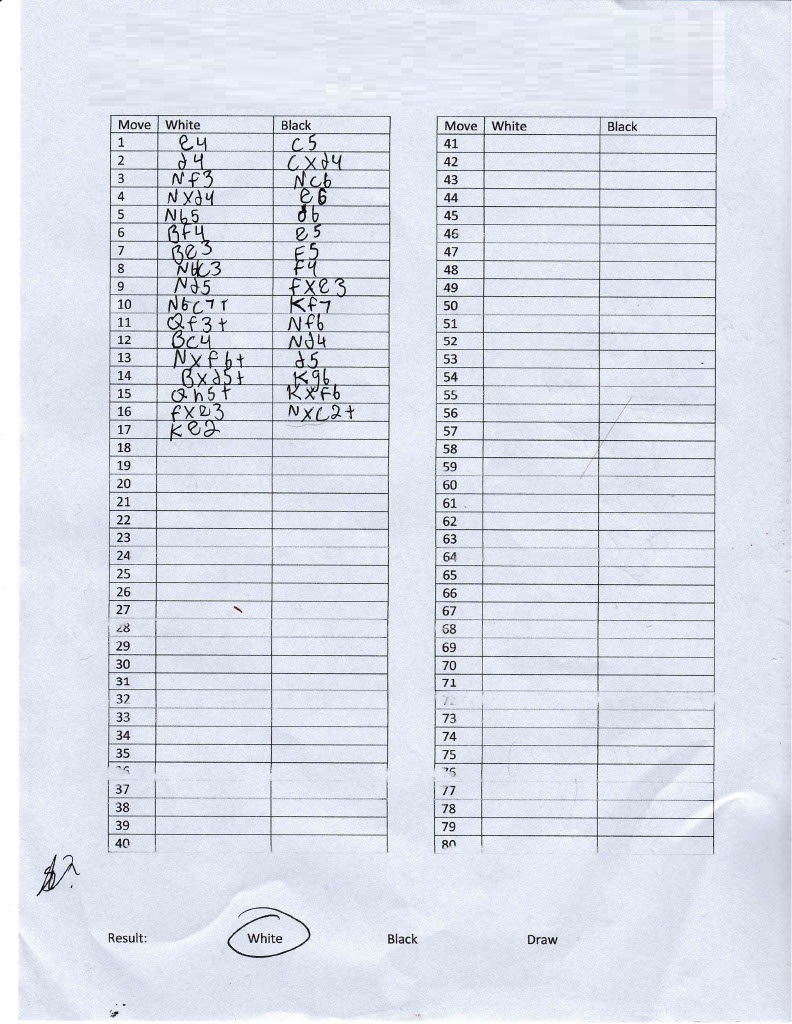 Move White Black
1 e4 c5
2 d4 cxd4
3 Nf3 Nc6
4 Nxd4 e6
5 Nb5 d6
6 Bf4 e5
7 Be3 F5
8 Nbc3 f4
9 Nd5 fxe3
10 Nbc7+ Kf7
11 Qf3+ Nf6
12 Bc4 Nd4
13 Nxf6+ d5
14 Bxd5+ Kg6
15 Qh5+ Kxf6
16 fxe3 Nxc2+
17 Ke2
18
19
20
21
22
23
24
25
26
27
28
29
30
31
32
33
34
35
37
38
39
40
Move White Black
41
42
43
44
45
46
47
48
49
50
51
52
53
54
55
56
57
58
59
60
61
62
63
64
65
66
67
68
69
70
71
72
73
74
75
76
77
78
79
80
Result: White Black Draw